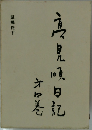 高見順日記
第四巻